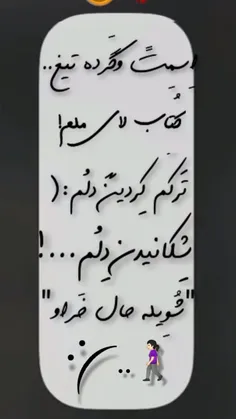 اِسمِتً وَگَرده تیغ..
کُتاب لای ملم!
تَرکم کِردینً دلُم :(
شِکانیدن دِلُم....!
"شُوِیله حال خَراو"
:(..